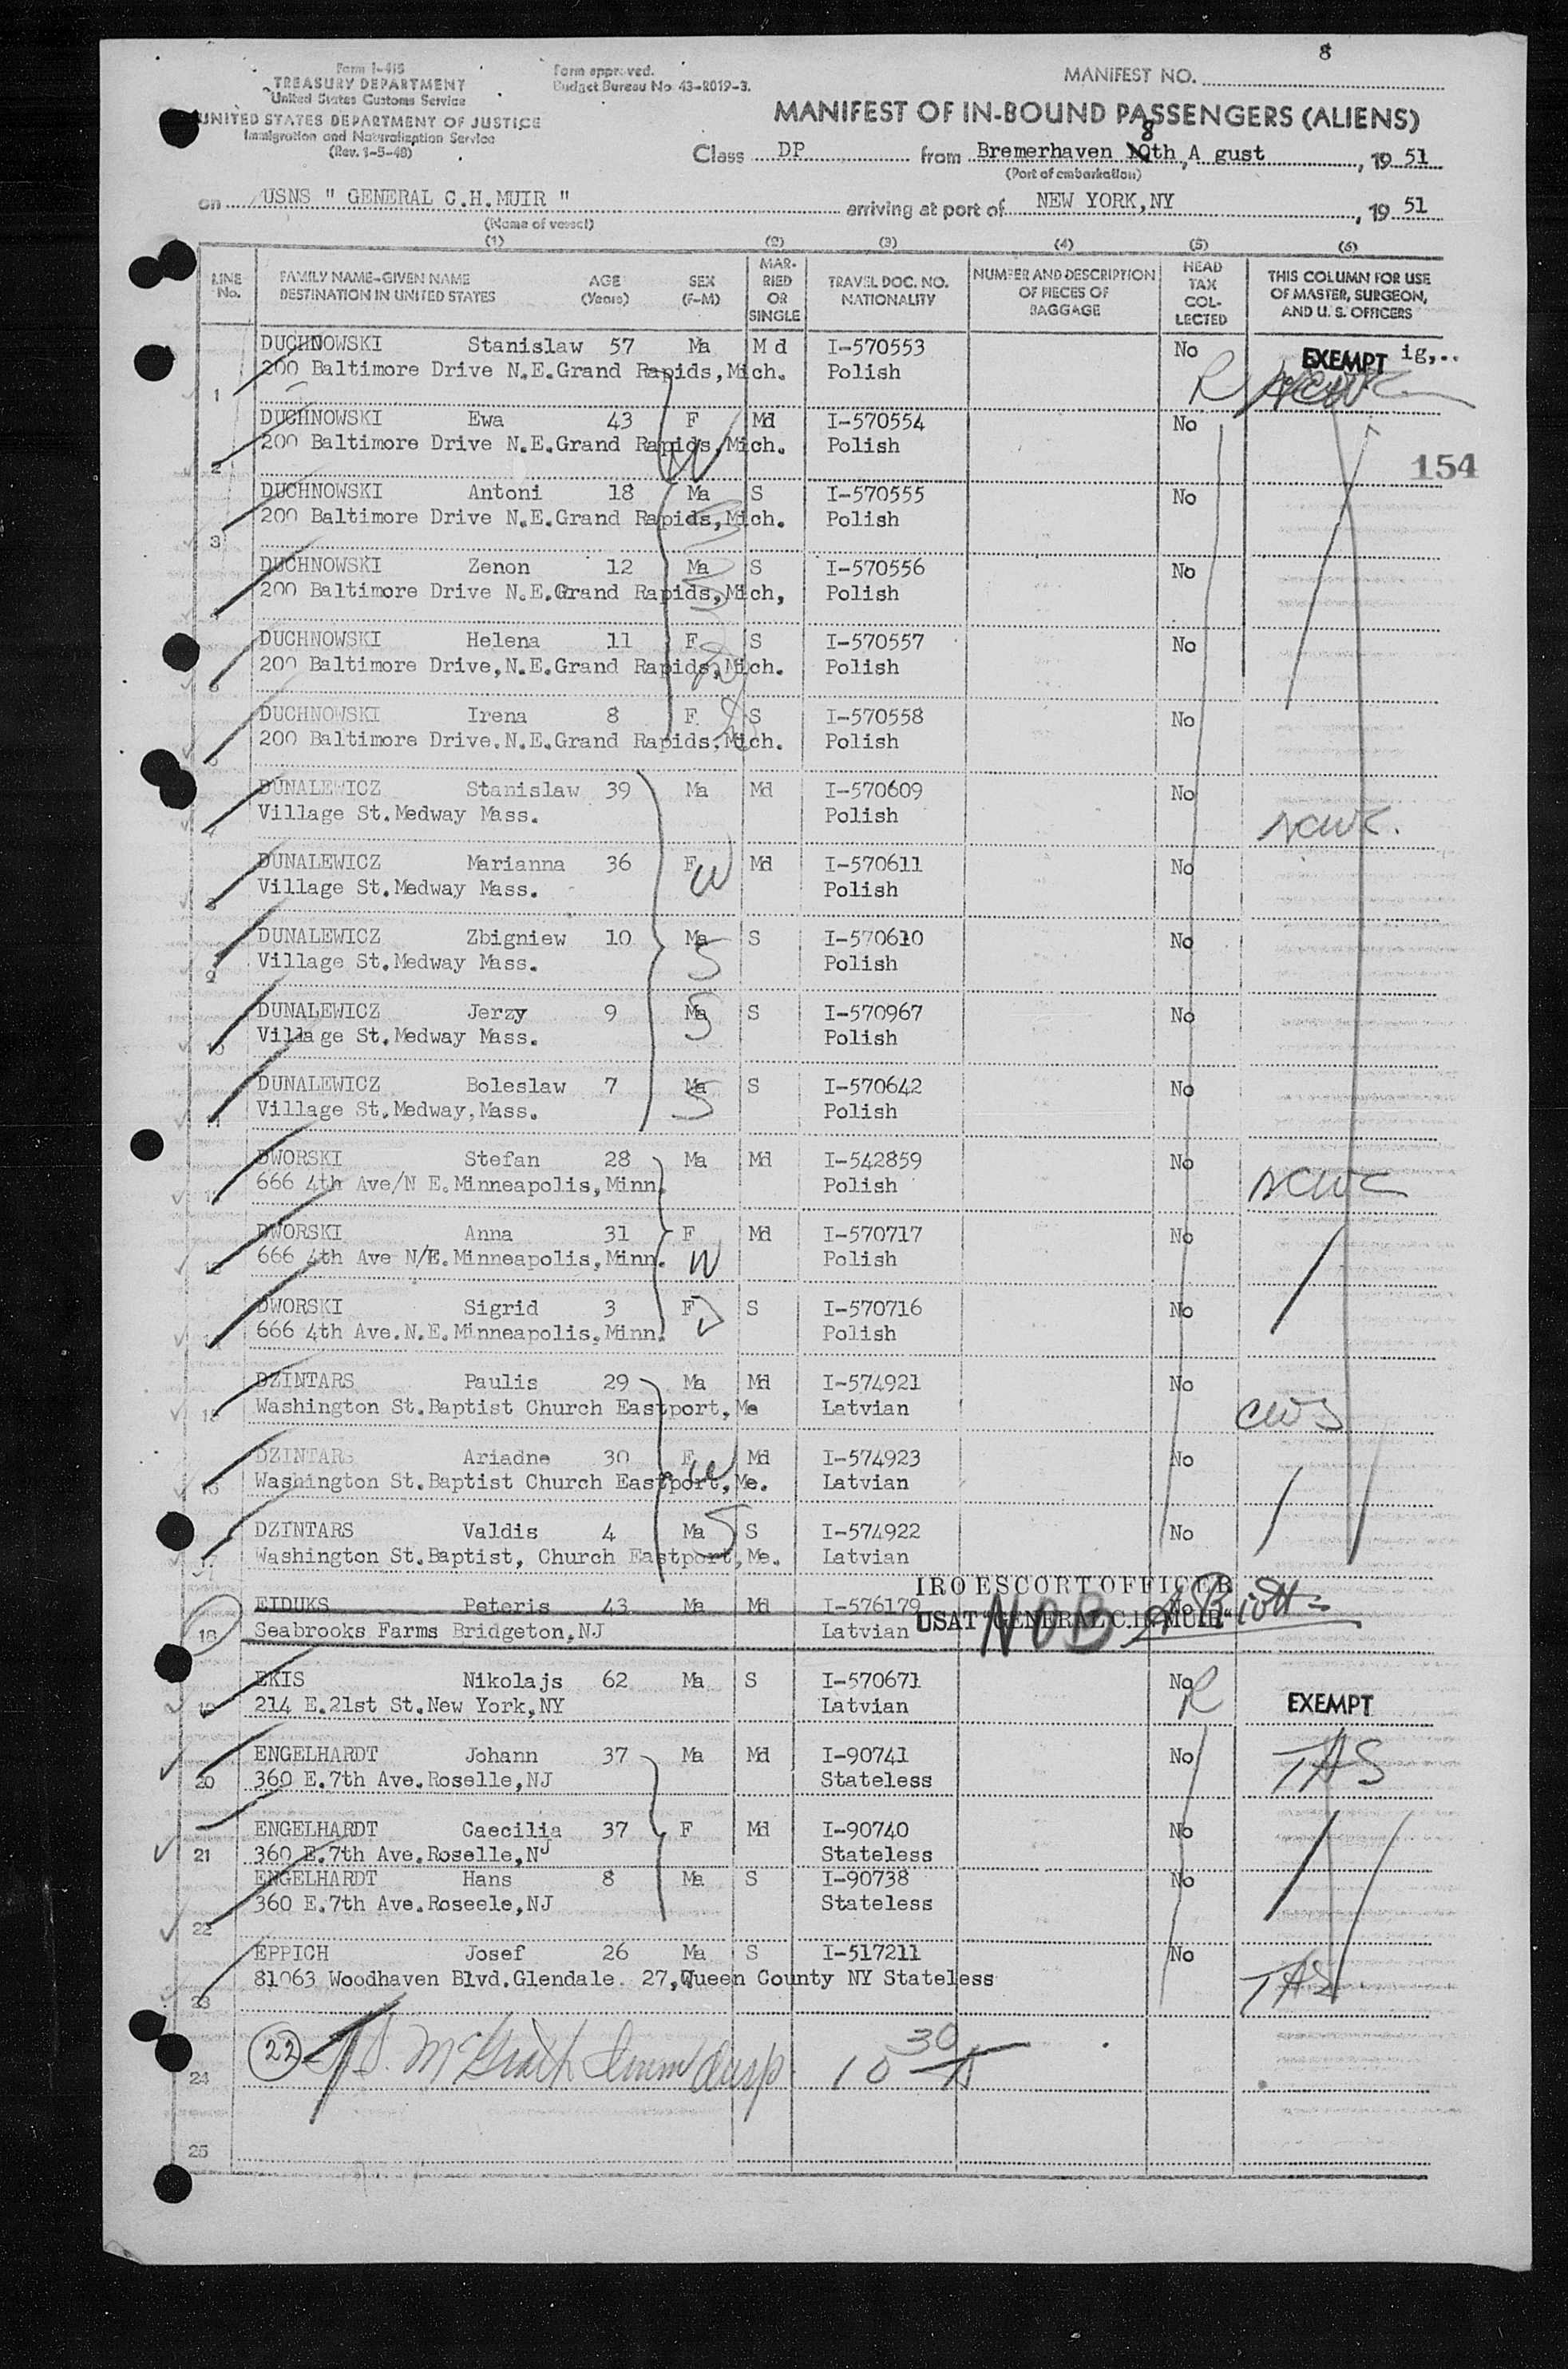 8
Form I-415
TREASURY DEPARTMENT
United States Customs Service
UNITED STATES DEPARTMENT OF JUSTICE
Immigration and Naturalization Service
(Rev. 1-5-48)
Form approved.
Budget Bureau No. 43-R019-3.
MANIFEST NO.
MANIFEST OF IN-BOUND PASSENGERS (ALIENS)
8
Class DP from Bremerhaven 10th, A gust, 1951
(Port of embarkation)
on USNS " GENERAL C.H.MUIR " arriving at port of NEW YORK,NY, 1951
(Name of vessel)
(1) (2) (3) (4) (5) (6)
LINE No. FAMILY NAME-GIVEN NAME DESTINATION IN UNITED STATES AGE (Years) SEX (F-M) MARRIED OR SINGLE TRAVEL DOC. NO. NATIONALITY NUMBER AND DESCRIPTION OF PIECES OF BAGGAGE HEAD TAX COLLECTED THIS COLUMN FOR USE OF MASTER, SURGEON, AND U. S. OFFICERS
DUCHNOWSKI Stanislaw 57 Ma M d I-570553 No EXEMPT ig,..
1 200 Baltimore Drive N.E.Grand Rapids,Mich. Polish R NCWC
DUCHNOWSKI Ewa 43 F Md I-570554 No
2 200 Baltimore Drive N.E.Grand Rapids,Mich. W Polish 154
DUCHNOWSKI Antoni 18 Ma S I-570555 No
3 200 Baltimore Drive N.E.Grand Rapids,Mich. S Polish
DUCHNOWSKI Zenon 12 Ma S I-570556 No
4 200 Baltimore Drive N.E.Grand Rapids,Mich, S Polish
DUCHNOWSKI Helena 11 F S I-570557 No
5 200 Baltimore Drive,N.E.Grand Rapids,Mich. D Polish
DUCHNOWSKI Irena 8 F S I-570558 No
6 200 Baltimore Drive.N.E.Grand Rapids,Mich. D Polish
DUNALEWICZ Stanislaw 39 Ma Md I-570609 No
7 Village St.Medway Mass. Polish NCWC.
DUNALEWICZ Marianna 36 F Md I-570611 No
8 Village St.Medway Mass. W Polish
DUNALEWICZ Zbigniew 10 Ma S I-570610 No
9 Village St.Medway Mass. S Polish
DUNALEWICZ Jerzy 9 Ma S I-570967 No
10 Village St.Medway Mass. S Polish
DUNALEWICZ Boleslaw 7 Ma S I-570642 No
11 Village St.Medway,Mass. S Polish
DWORSKI Stefan 28 Ma Md I-542859 No
12 666 4th Ave/N E.Minneapolis,Minn. Polish NCWC
DWORSKI Anna 31 F Md I-570717 No
13 666 4th Ave N/E.Minneapolis,Minn. W Polish
DWORSKI Sigrid 3 F S I-570716 No
14 666 4th Ave.N.E.Minneapolis.Minn. D Polish
DZINTARS Paulis 29 Ma Md I-574921 No
15 Washington St.Baptist Church Eastport,Me Latvian CWS
DZINTARS Ariadne 30 F Md I-574923 No
16 Washington St.Baptist Church Eastport,Me. W Latvian
DZINTARS Valdis 4 Ma S I-574922 No
17 Washington St.Baptist, Church Eastport,Me. S Latvian
IRO ESCORT OFFICER
EIDUKS Peteris 43 Ma Md I-576179 No
18 Seabrooks Farms Bridgeton,NJ Latvian USAT "GENERAL C.H. MUIR" NOB
EKIS Nikolajs 62 Ma S I-570671 No R
19 214 E.21st St.New York,NY Latvian EXEMPT
ENGELHARDT Johann 37 Ma Md I-90741 No
20 360 E.7th Ave.Roselle,NJ Stateless TAS
ENGELHARDT Caecilia 37 F Md I-90740 No
21 360 E.7th Ave.Roselle,NJ Stateless
ENGELHARDT Hans 8 Ma S I-90738 No
22 360 E.7th Ave.Roseele,NJ Stateless
EPPICH Josef 26 Ma S I-517211 No
23 81063 Woodhaven Blvd.Glendale. 27,Queen County NY Stateless TAS
24 22 McGrath Imm Insp. 10 30 A
25